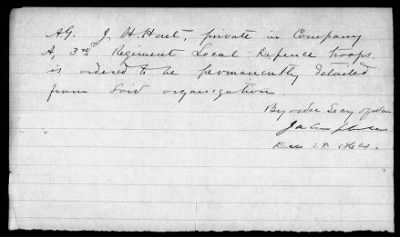 AG. J. H. Hart, private in Company
A, 3rd Regiment Local Defence troops.
is ordered to be permanently detailed
from said organization
By order Secy of War
Dec 28 1864.